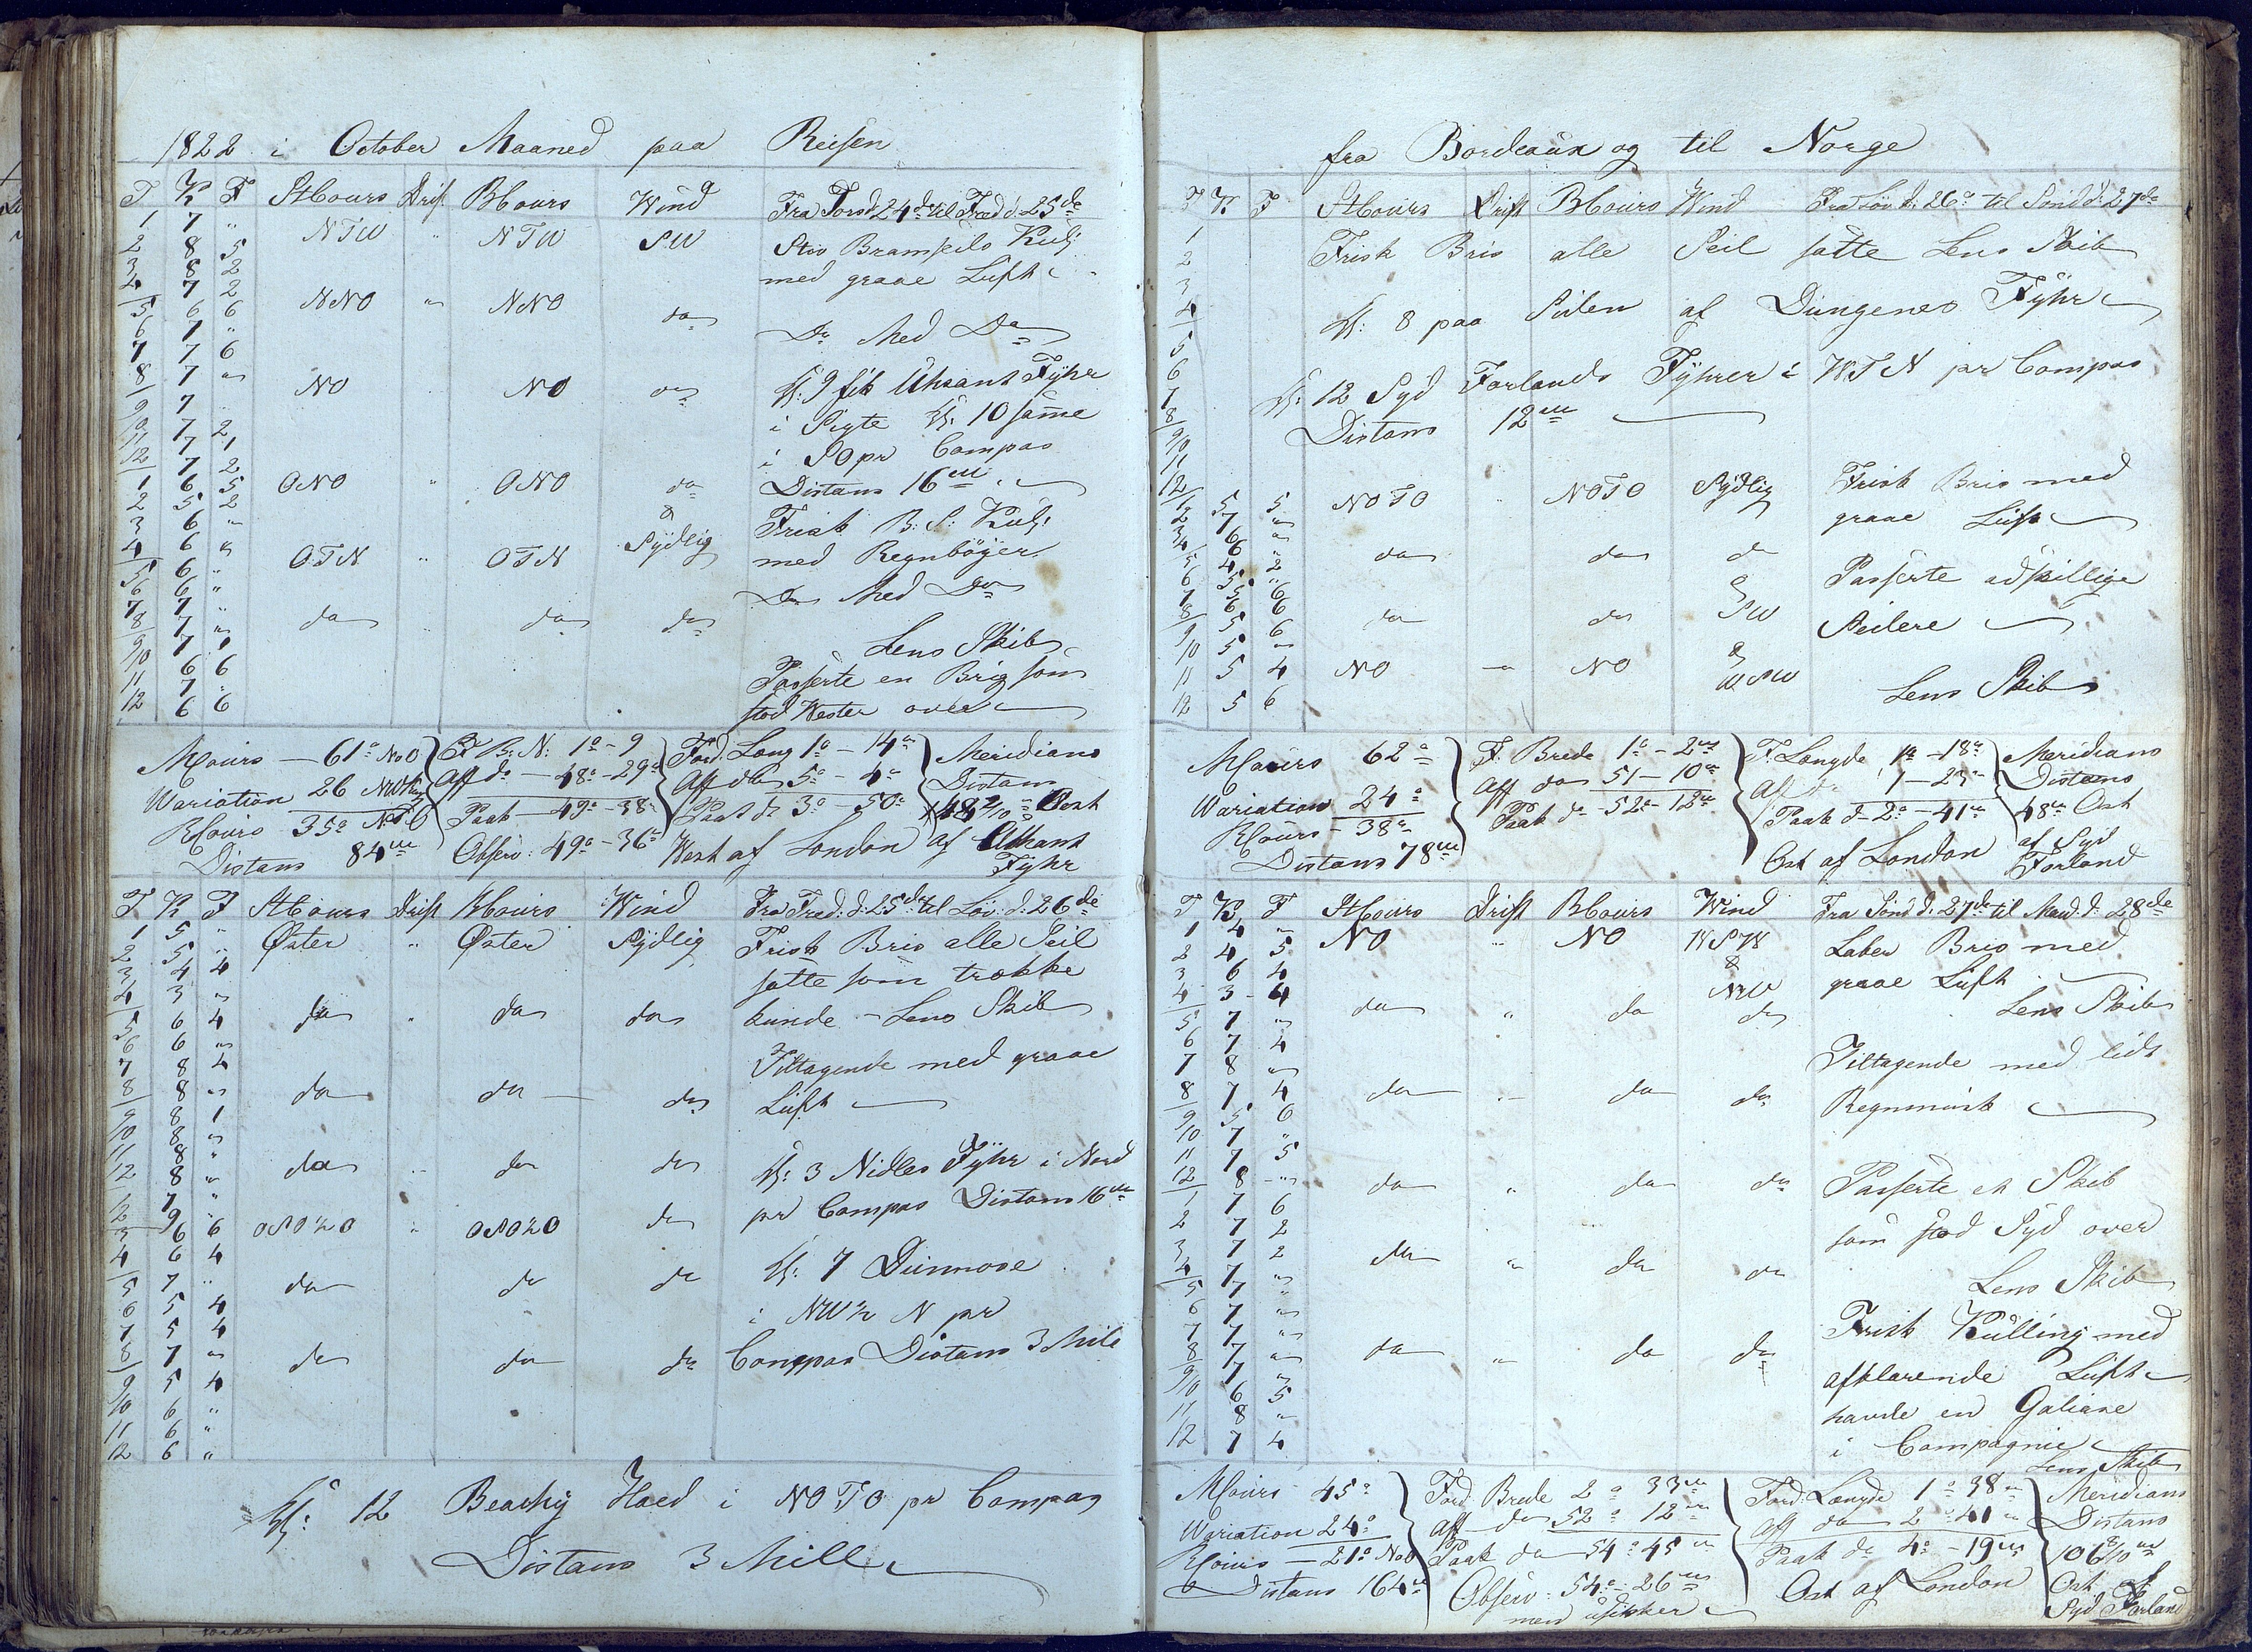 1822 i October Maaned paa Reisen
T K F StCours Drift BCours Wind Fra Torsd: 24de til Fred d: 25de
1 7 "
2 8 5 NTW " NTW SW Stiv Bramseils Kul:
3 8 2 med graae Luft
4 7 2
5 6 6 NNO " NNO do
6 7 " Do Med Do
7 7 6
8 7 " NO NO do Kl: 9 fik Uhsant Fÿhr
9 7 " i Sigte Kl: 10 samme
10 7 2 i SO pr Compas
11 7 1
12 7 2 Distans 16 m
1 6 5 ONO " ONO do
2 5 2 & Frisk B: S: Kul:
3 6 " Sÿdlig med Regnböÿer
4 6 " OTN " OTN
5 6 " Do Med Do
6 6 "
7 7 "
8 7 " do " do do Lens Skib
9 7 1
10 6 6 Passerte en Brig som
11 7 " stod Wester over
12 6 6
MCours — 61° NoO F: B: N: 1° - 9 Ford. Long 1° - 14 m Meridians
Wariation 26 Aff do — 48° - 29 Aff do 5° - 4 m Distans
RCours 35° Paak — 49° - 38 Paak do 3° - 50 West
Distans 84 m Observ: 49° - 36 m West af London af Uhsant Fÿhr
T K F StCours Drift BCours Wind Fra Fred: d: 25de til Löv: d: 26de
1 5 " Öster " Öster Sÿdlig Frisk Bris alle Seil
2 5 "
3 4 4 satte som trække
4 3 " do " do do kunde – Lens Skib
5 6 4
6 6 " Tiltagende med graae
7 8 4
8 8 " do do do Luft
9 8 1
10 8 "
11 8 " do do do Kl: 3 Nidles Fÿhr i Nord
12 8 "
1 7 " pr Compas Distans 16 m
2 9 "
3 6 6 OSO½O " OSO½O do
4 6 4 Kl: 7 Dunnose
5 7 " do do do
6 5 4 i NW½ N pr
7 5 4
8 7 " do do do Compas Distans 3 Mile
9 5 4
10 6 "
11 6 "
12 6 "
Kl: 12 Beachÿ Haed i NOTO pr Compas
Distans 3 Mill
fra Bordeaux og til Norge
T K F StCours Drift BCours Wind Fra Löv d: 26de til Sönd d: 27de
1
2 Frisk Bris alle Seil satte Lens Skib
3
4 Kl: 8 paa Siden af Dungenes Fÿhr
5
6
7 Kl: 12 Sÿd Forlands Fÿhrer i WTN pr Compas
8
9 Distans 12 m
10
11
12
1 5 5 NOTO " NOTO Sÿdlig Frisk Bris med
2 7 " graae Luft
3 6 "
4 6 " do do do
5 4 2 Passerte adskillige
6 5 "
7 5 6 &
8 6 6 do do SW Seilere
9 5 6
10 5 " &
11 5 4 NO NO WSW Lens Skib
12 5 6
MCours 62° F. Brede 1° - 2 m F. Longde 1° - 18 m Meridians
Wariation 24° Aff do 51 - 10 m Af do 1 - 23 m Distans
RCours - 38° Paak do - 52° - 12 m Paak d - 2° - 41 m 48 m Ost
Distans 78 m Ost af London af Sÿd Forland
T K F StCours Drift BCours Wind Fra Sönd d: 27de til Mand. d: 28de
1 4 " NO " NO WSW Laber Bris med
2 4 5 &
3 6 4 NW graae Luft
4 3 4 do " do do Lens Skib
5 7 "
6 7 4 Tiltagende med lidt
7 8 "
8 7 4 do " do do Regnmusk
9 5 6
10 7 "
11 7 5
12 8 " do " do do Passerte et Skib
1 7 6
2 7 2 som stod Sÿd over
3 7 2 do " do do
4 7 " Lens Skib
5 7 "
6 7 " Frisk Kulling med
7 7 "
8 7 " do " do do afklarende Luft
9 7 "
10 6 5 havde en Galiase
11 8 "
12 7 4 i Compagnie
Lens Skib
MCours 45° Ford. Brede 2° 33 m Ford. Længde 1° 38 m Meridians
Wariation 24° Aff do 52° 12 m Aff do 2 41 m Distans
RCours — 21° NoO Paak do 54° 45 m Paak do 4° - 19 m 106 m
Distans 164 m Observ: 54° - 26 m Ost af London Ost af
men usikker Sÿd Forland